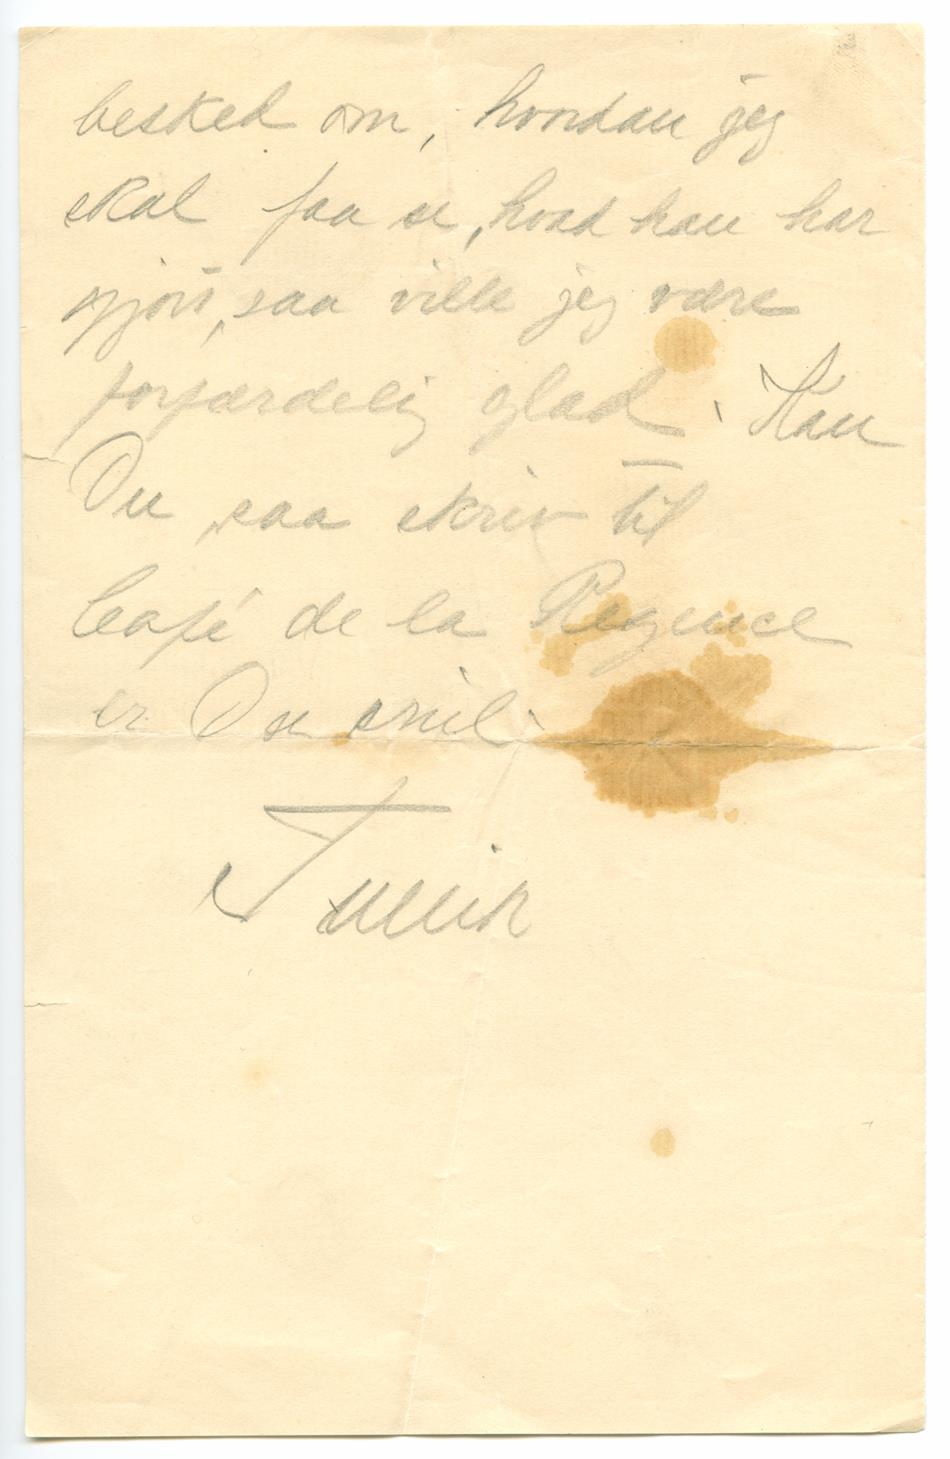 besked om, hvordan jeg
skal faa se, hvad han har
gjort, saa vilde jeg være
forfærdelig glad. Kan
Du, saa skriv til
Café de la Regence
er Du snil.